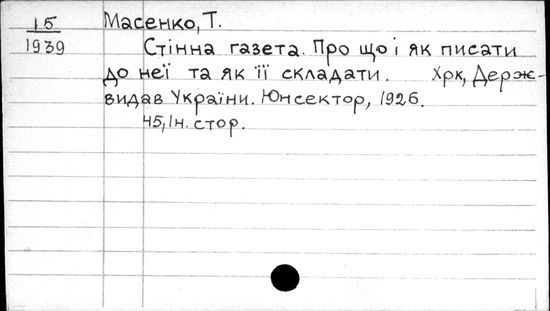 15 Масенко, Т.
1939 Стінна газета. Про що і як писати
до неї та як її складати. Хрк, Держ-
видав України. Юнсектор, 1926.
45, Iн. стор.